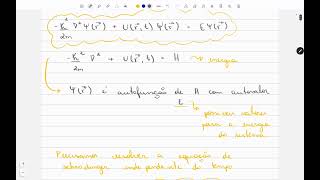 -ħ²/2m ∇²Ψ(r⃗) + U(r⃗,t) Ψ(r⃗) = EΨ(r⃗)
-ħ²/2m ∇² + U(r⃗,t) = H → energia
Ψ(r⃗) é autofunção de H com autovalor
E
↳ possíveis valores
para a energia
do sistema
Precisamos resolver a equação de
schrodinger independente do tempo